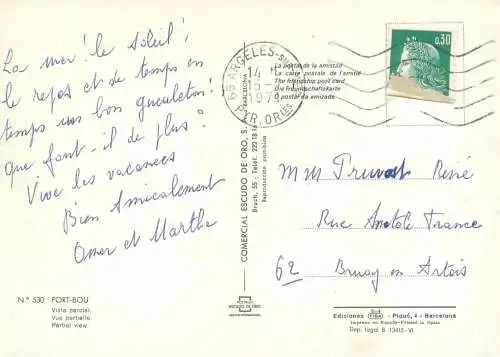 La mer! le soleil!
le repos et de temps en
temps un bon gueuleton!
que faut-il de plus?
Vive les vacances
Bien Amicalement
Omer et Marthe
Nº 530 PORT-BOU
Vista parcial.
Vue partielle.
Partial view.
COMERCIAL ESCUDO DE ORO, S.A.
BARCELONA
Bruch, 55 - Teléf. 222 18 16
Reproducción prohibida
ESCUDO DE ORO
66 ARGELÈS-SUR
14
197
PYR. ORles
La postal de la amistad
La carte postale de l'amitié
The friendship post card
Die Freundschaftskarte
O postal da amizade
0,30
MM Pruvost René
Rue Anatole France
62 Bruay en Artois
Ediciones FISA - Piqué, 4 - Barcelona
Impreso en España - Printed in Spain
Dep. legal B. 13412-VI